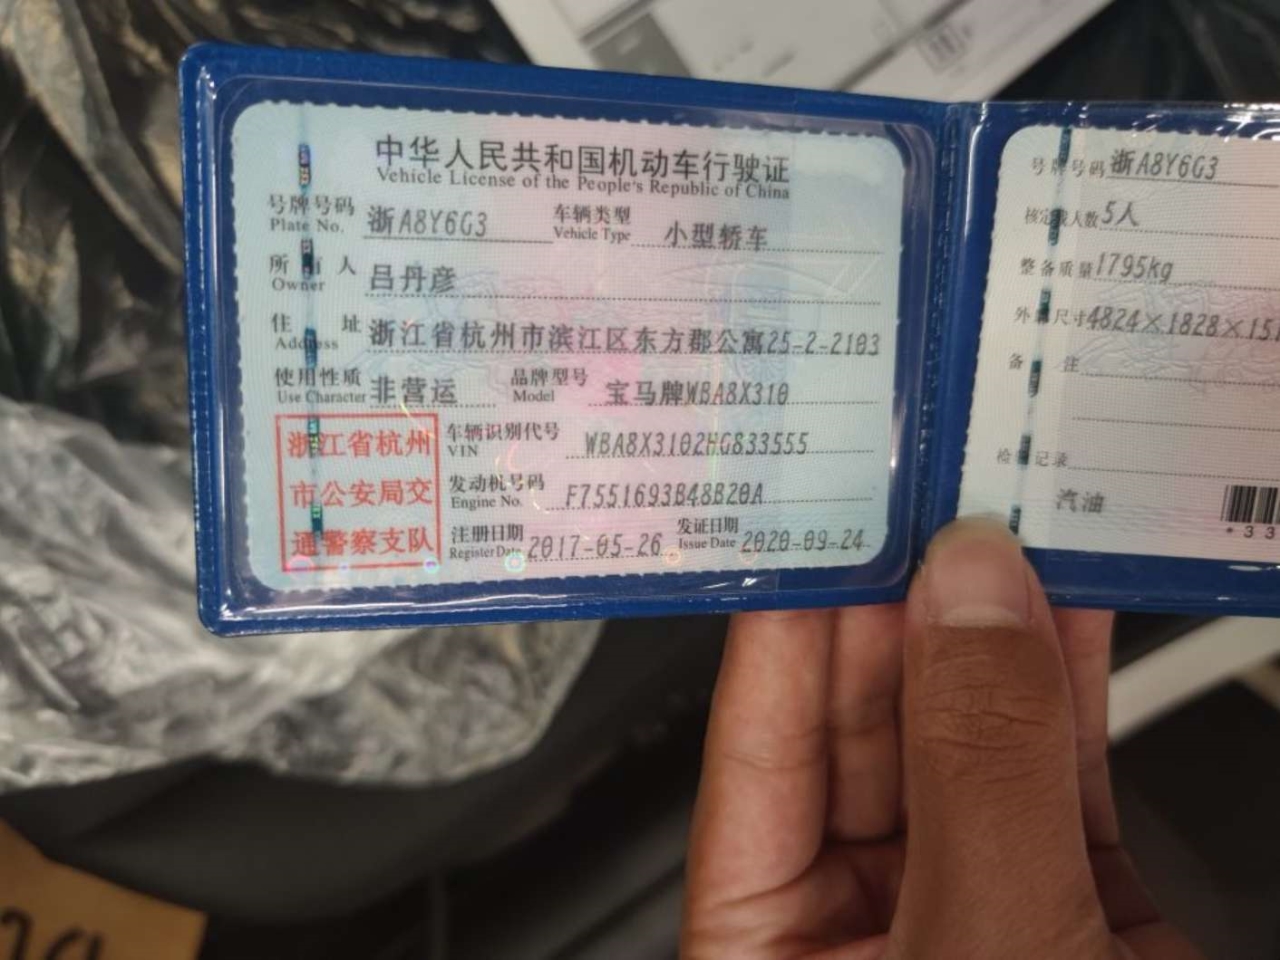 中华人民共和国机动车行驶证
Vehicle License of the People's Republic of China
号牌号码 浙A8Y6G3 车辆类型 小型轿车
Plate No. Vehicle Type
所有人 吕丹彦
Owner
住址 浙江省杭州市滨江区东方郡公寓25-2-2103
Address
使用性质 非营运 品牌型号 宝马牌WBA8X310
Use Character Model
浙江省杭州
市公安局交
通警察支队
车辆识别代号 WBA8X3102HG833555
VIN
发动机号码 F7551693B48B20A
Engine No.
注册日期 2017-05-26 发证日期 2020-09-24
Register Date Issue Date
号牌号码 浙A8Y6G3
核定载人数 5人
整备质量 1795kg
外廓尺寸 4824×1828×15
备注
检验记录
汽油
*33